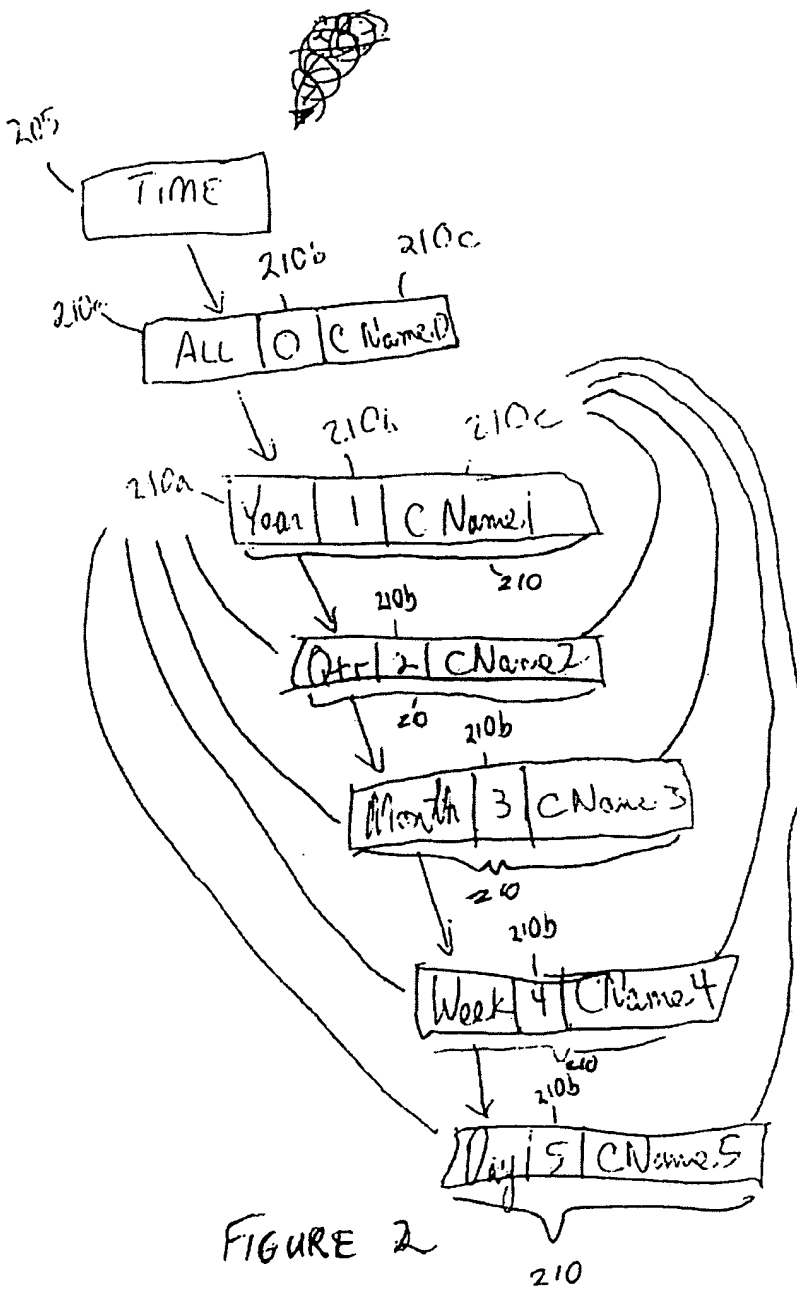 205
TIME
210b 210c
210a
ALL 0 CName.0
210b 210c
210a
Year 1 CName.1
210
210b
Qtr 2 CName2
20
210b
Month 3 CName.3
210
210b
Week 4 CName.4
210
210b
Day 5 CName.5
210
FIGURE 2